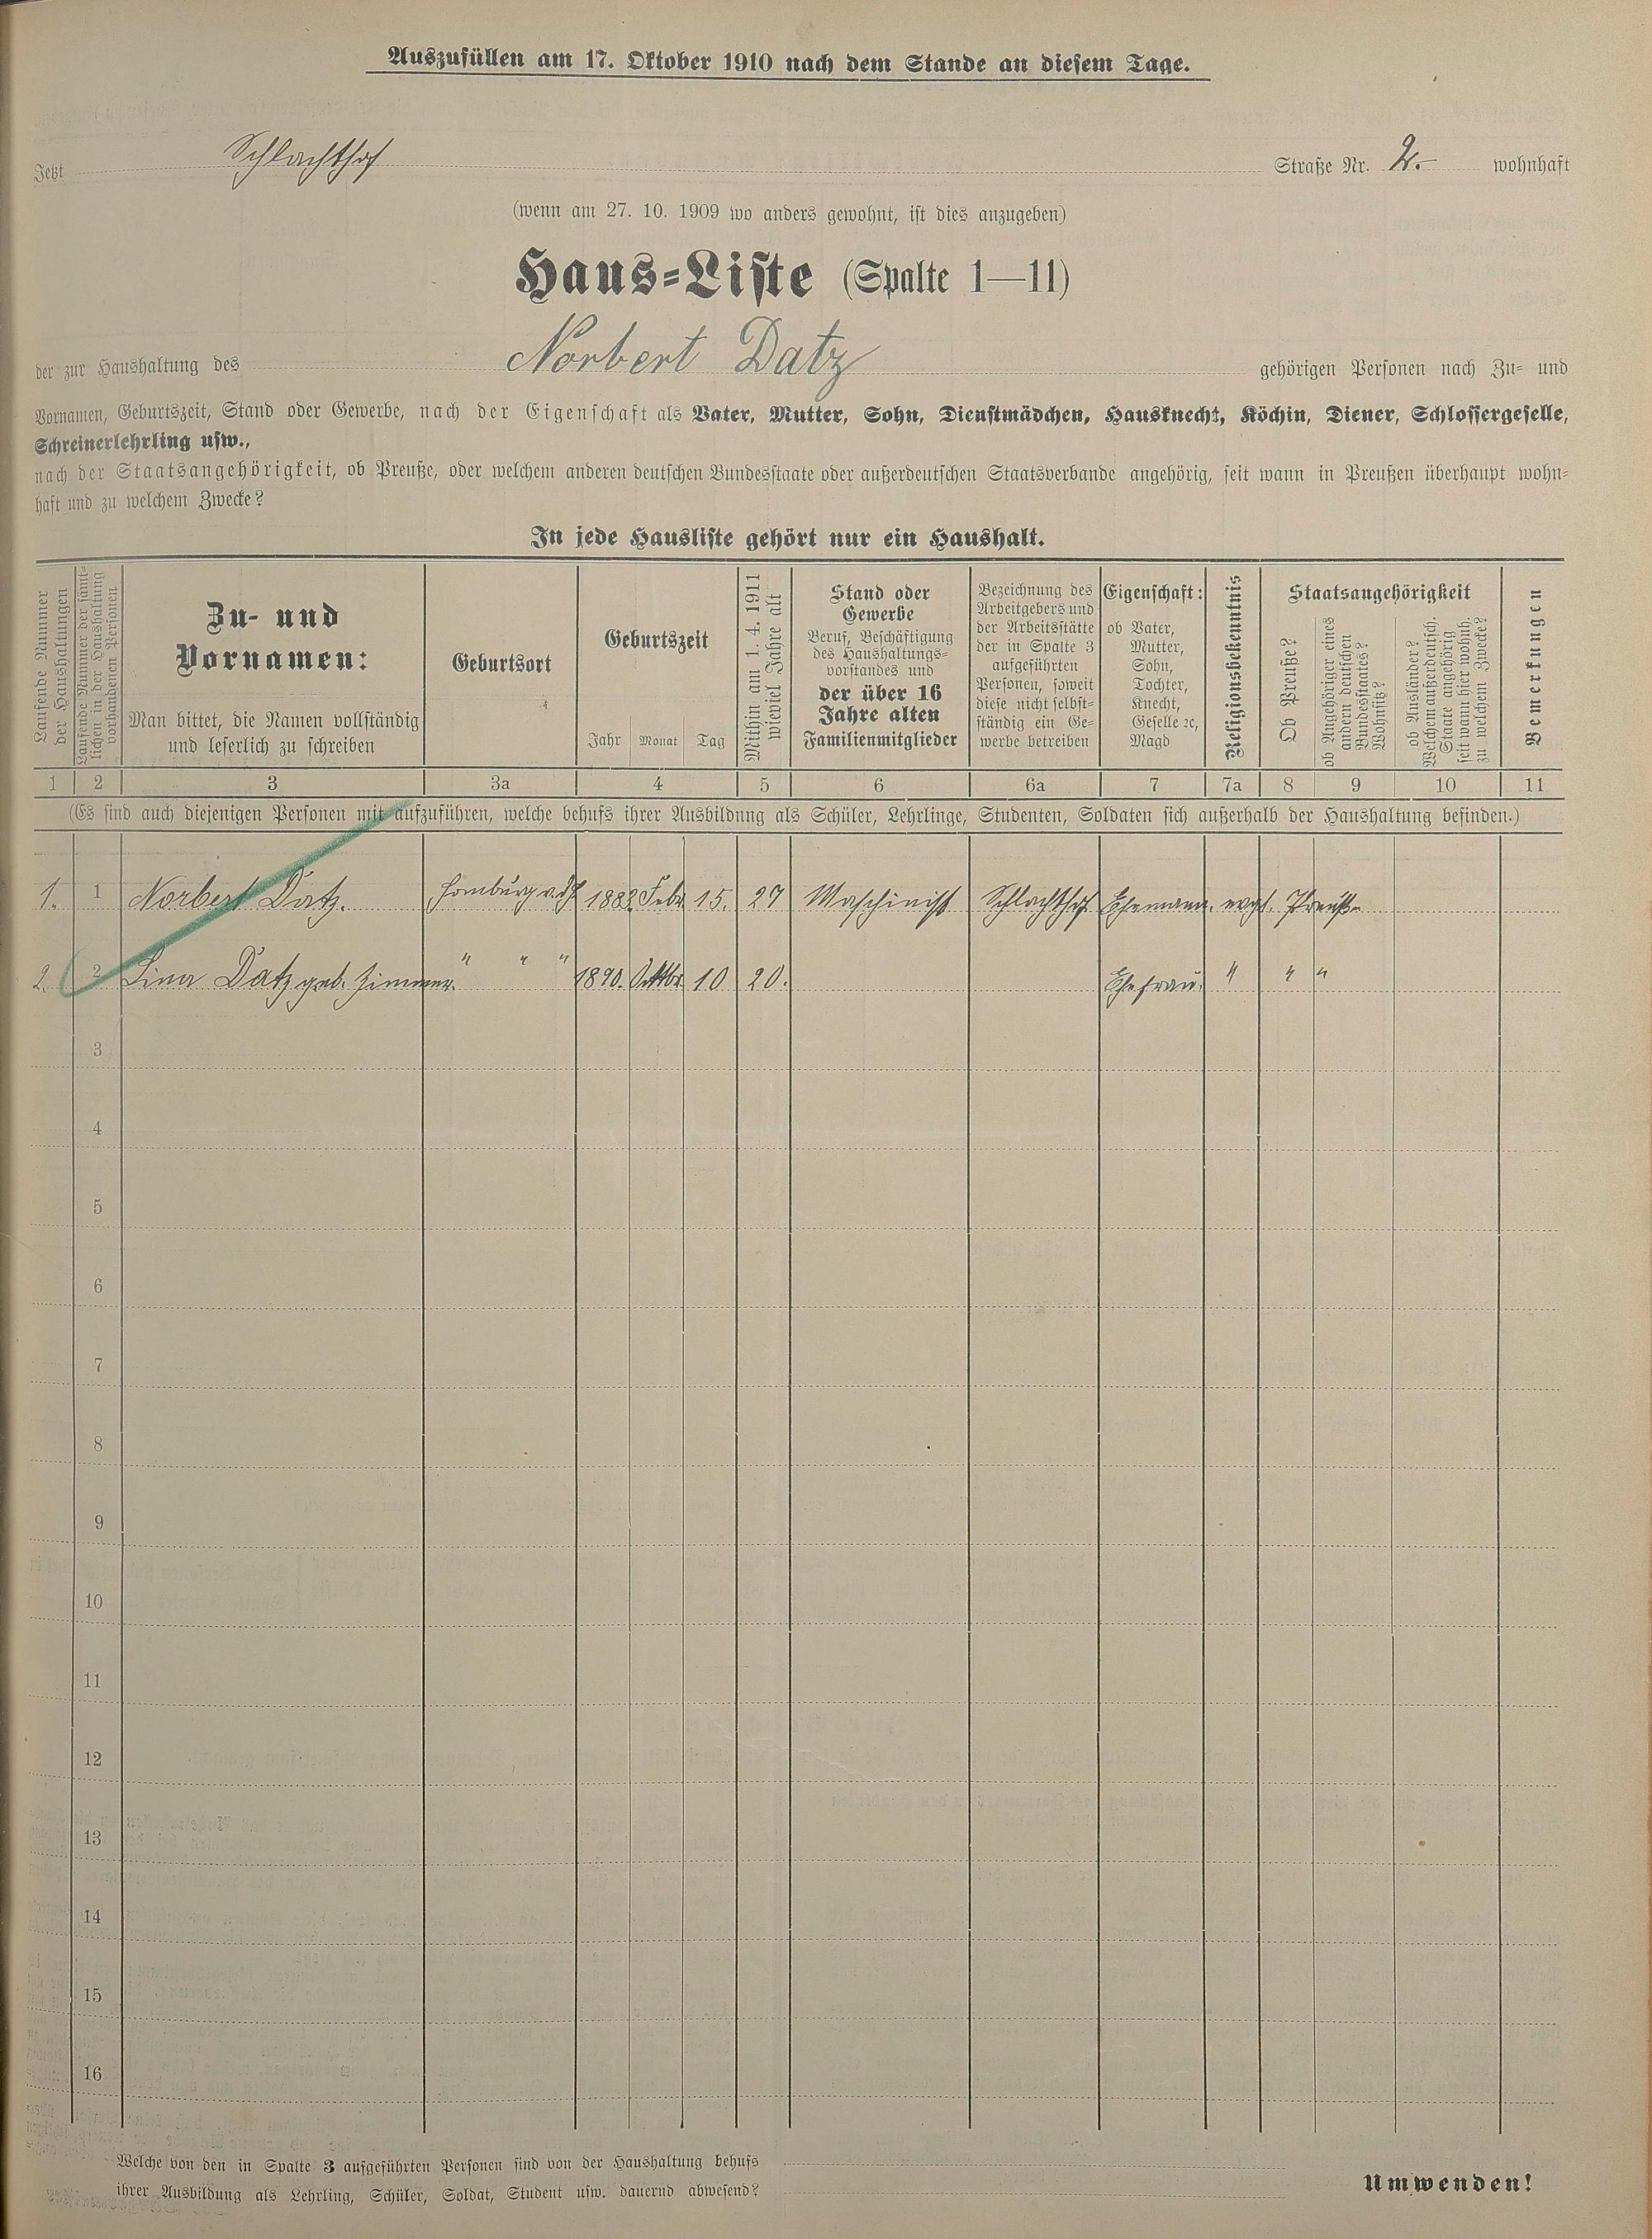 Auszufüllen am 17. Oktober 1910 nach dem Stande an diesem Tage.
Jetzt Schlachthof Straße Nr. 2. wohnhaft
(wenn am 27. 10. 1909 wo anders gewohnt, ist dies anzugeben)
Haus-Liste (Spalte 1—11)
der zur Haushaltung des Norbert Datz gehörigen Personen nach Zu- und
Vornamen, Geburtszeit, Stand oder Gewerbe, nach der Eigenschaft als Vater, Mutter, Sohn, Dienstmädchen, Hausknecht, Köchin, Diener, Schlossergeselle,
Schreinerlehrling usw.,
nach der Staatsangehörigkeit, ob Preuße, oder welchem anderen deutschen Bundesstaate oder außerdeutschen Staatsverbande angehörig, seit wann in Preußen überhaupt wohn-
haft und zu welchem Zwecke?
In jede Hausliste gehört nur ein Haushalt.
Laufende Nummer
der Haushaltungen
Laufende Nummer der sämt-
lichen in der Haushaltung
vorhandenen Personen
Zu- und
Vornamen:
Man bittet, die Namen vollständig
und leserlich zu schreiben
Geburtsort
Geburtszeit
Jahr Monat Tag
Mithin am 1. 4. 1911
wieviel Jahre alt
Stand oder
Gewerbe
Beruf, Beschäftigung
des Haushaltungs-
vorstandes und
der über 16
Jahre alten
Familienmitglieder
Bezeichnung des
Arbeitgebers und
der Arbeitsstätte
der in Spalte 3
aufgeführten
Personen, soweit
diese nicht selbst-
ständig ein Ge-
werbe betreiben
Eigenschaft:
ob Vater,
Mutter,
Sohn,
Tochter,
Knecht,
Geselle ꝛc,
Magd
Religionsbekenntnis
Staatsangehörigkeit
Ob Preuße?
ob Angehöriger eines
andern deutschen
Bundesstaates?
Wohnsitz?
ob Ausländer?
Welchem außerdeutsch.
Staate angehörig
seit wann hier wohnh.
zu welchem Zwecke?
Bemerkungen
1 2 3 3a 4 5 6 6a 7 7a 8 9 10 11
(Es sind auch diejenigen Personen mit aufzuführen, welche behufs ihrer Ausbildung als Schüler, Lehrlinge, Studenten, Soldaten sich außerhalb der Haushaltung befinden.)
1. 1 Norbert Datz. Homburg v.d.H. 1882 Febr. 15. 27 Maschinist Schlachthof Ehemann. evgl. Preuße
2. 2 Lina Datz geb. Zimmer. " " " 1890. Oktbr. 10 20. Ehefrau. " " "
3
4
5
6
7
8
9
10
11
12
13
14
15
16
Welche von den in Spalte 3 aufgeführten Personen sind von der Haushaltung behufs
ihrer Ausbildung als Lehrling, Schüler, Soldat, Student usw. dauernd abwesend?
Umwenden!